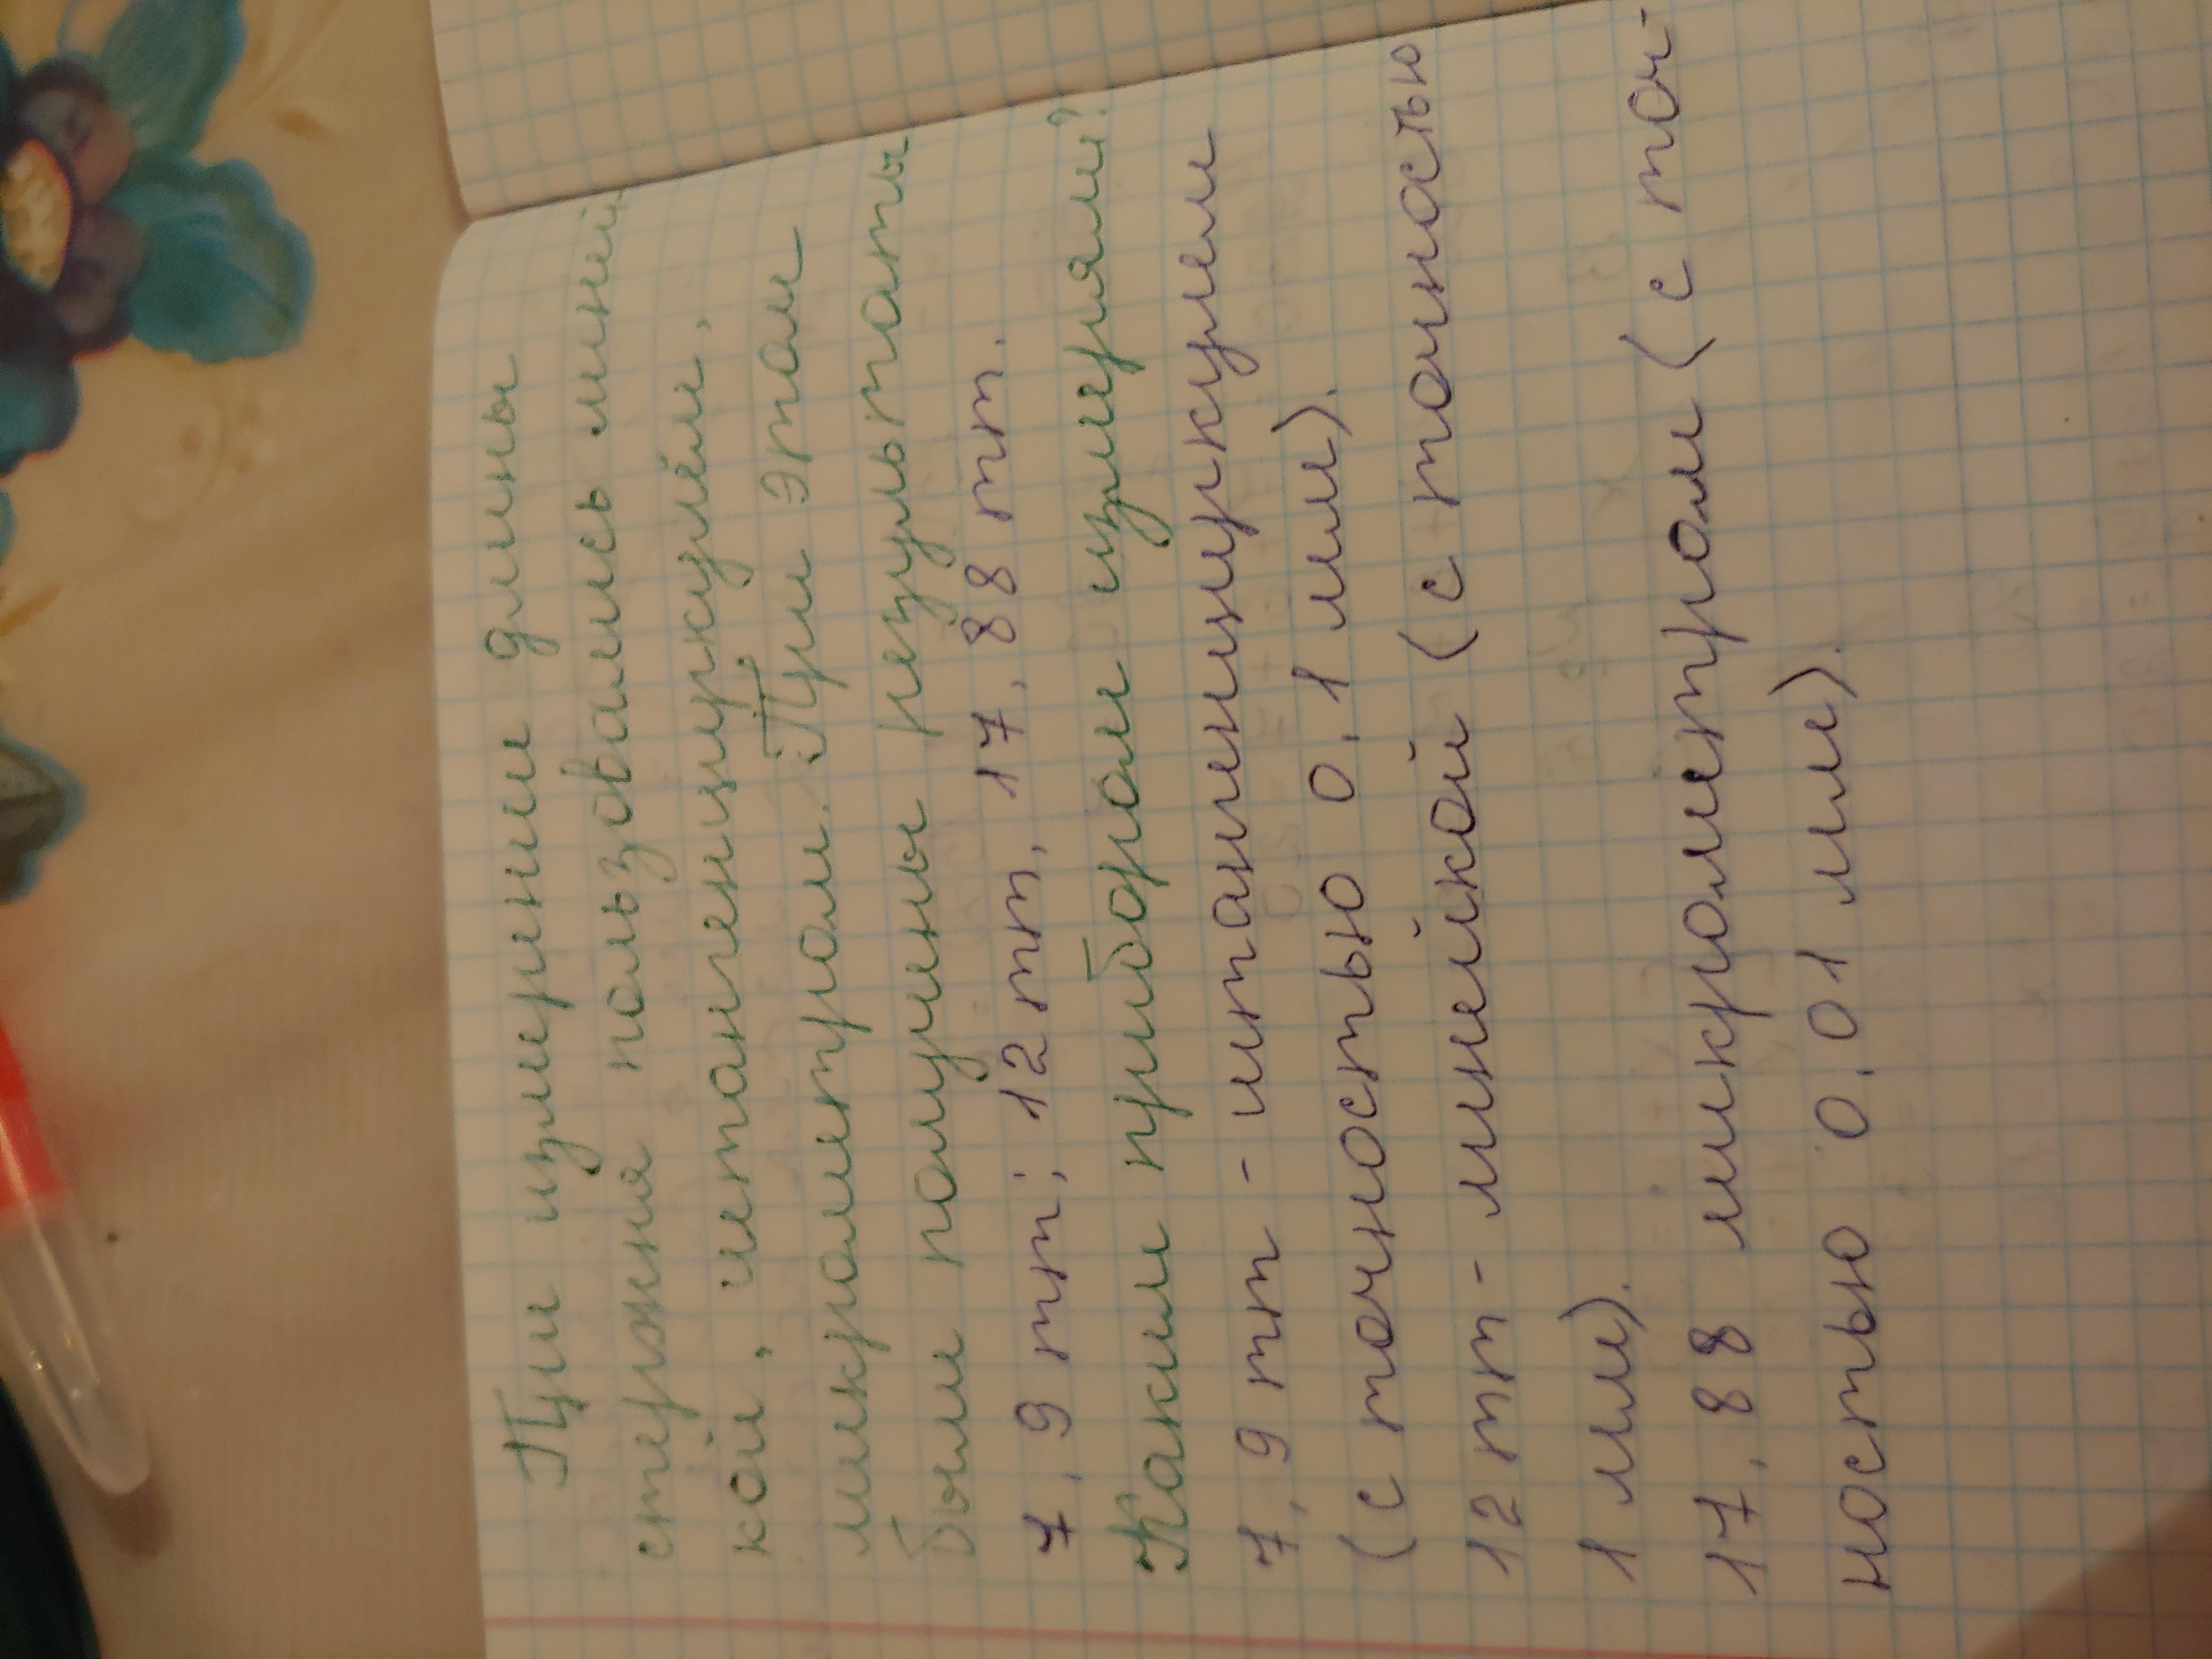 При измерении длины
стержня пользовались линей-
кой, штангенциркулем,
микрометром. При этом
были получены результаты
7,9 mm; 12 mm, 17,88 mm.
Каким прибором измеряли?
7,9 mm - штангенциркулем
(с точностью 0,1 мм).
12 mm - линейкой (с точностью
1 мм).
17,88 микрометром (с точ-
ностью 0,01 мм).